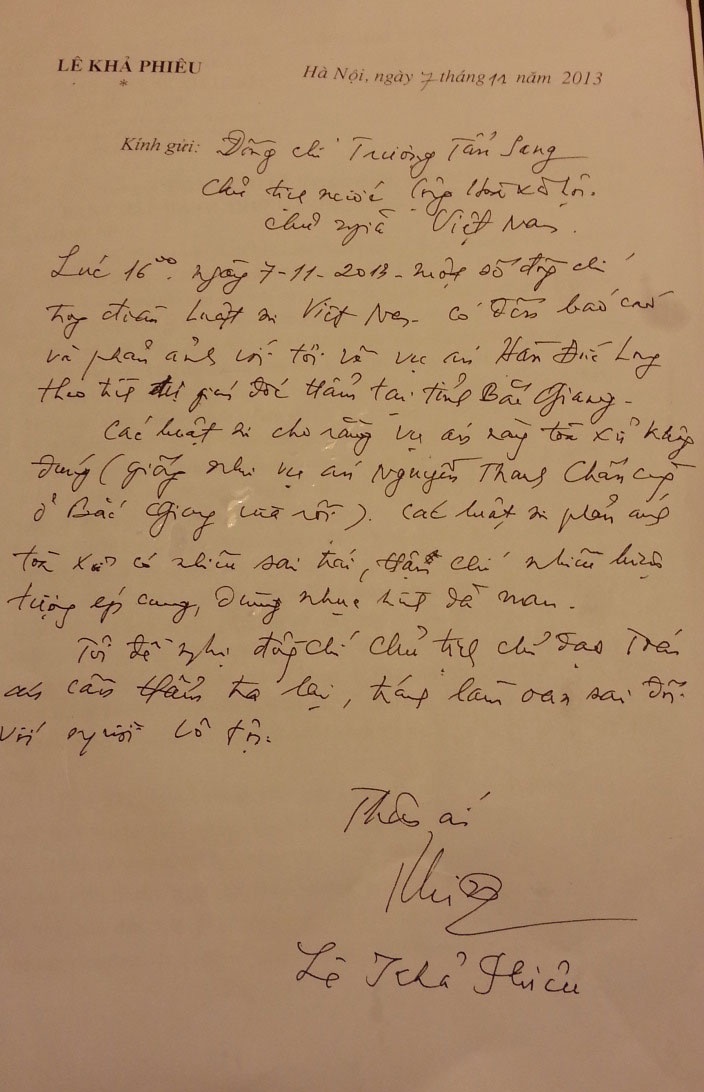 LÊ KHẢ PHIÊU
*
Hà Nội, ngày 7 tháng 11 năm 2013
Kính gửi: Đồng chí Trương Tấn Sang
Chủ tịch nước Cộng Hoà xã hội
chủ nghĩa Việt Nam.
Lúc 16⁰⁰. ngày 7-11-2013 - một số đồng chí
trong đoàn luật sư Việt Nam có đến báo cáo
và phản ảnh với tôi về vụ án Hàn Đức Long
theo giám đốc thẩm tại tỉnh Bắc Giang -
Các luật sư cho rằng vụ án này toà xử không
đúng (giống như vụ án Nguyễn Thanh Chấn cũng
ở Bắc Giang vừa rồi). Các luật sư phản ảnh
toà xử có nhiều sai trái, thậm chí nhiều hiện
tượng ép cung, dùng nhục hình dã man.
Tôi đề nghị đồng chí Chủ tịch chỉ đạo Toà
án cần thẩm tra lại, tránh làm oan sai đối
với người vô tội.
Thân ái
Lê Khả Phiêu